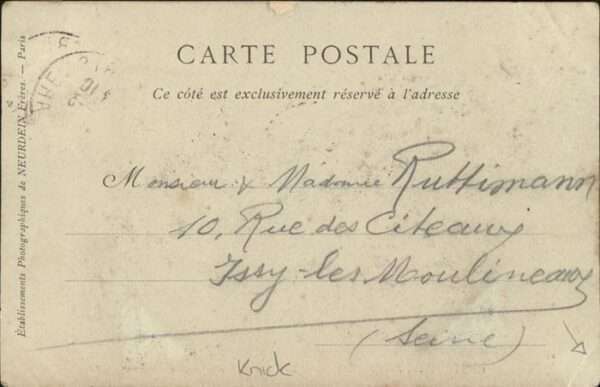 CARTE POSTALE
Ce côté est exclusivement réservé à l'adresse
Monsieur & Madame Ruttimann
10, Rue des Citeaux
Issy-les-Moulineaux
(Seine)
Knick
Établissements Photographiques de NEURDEIN Frères. — Paris